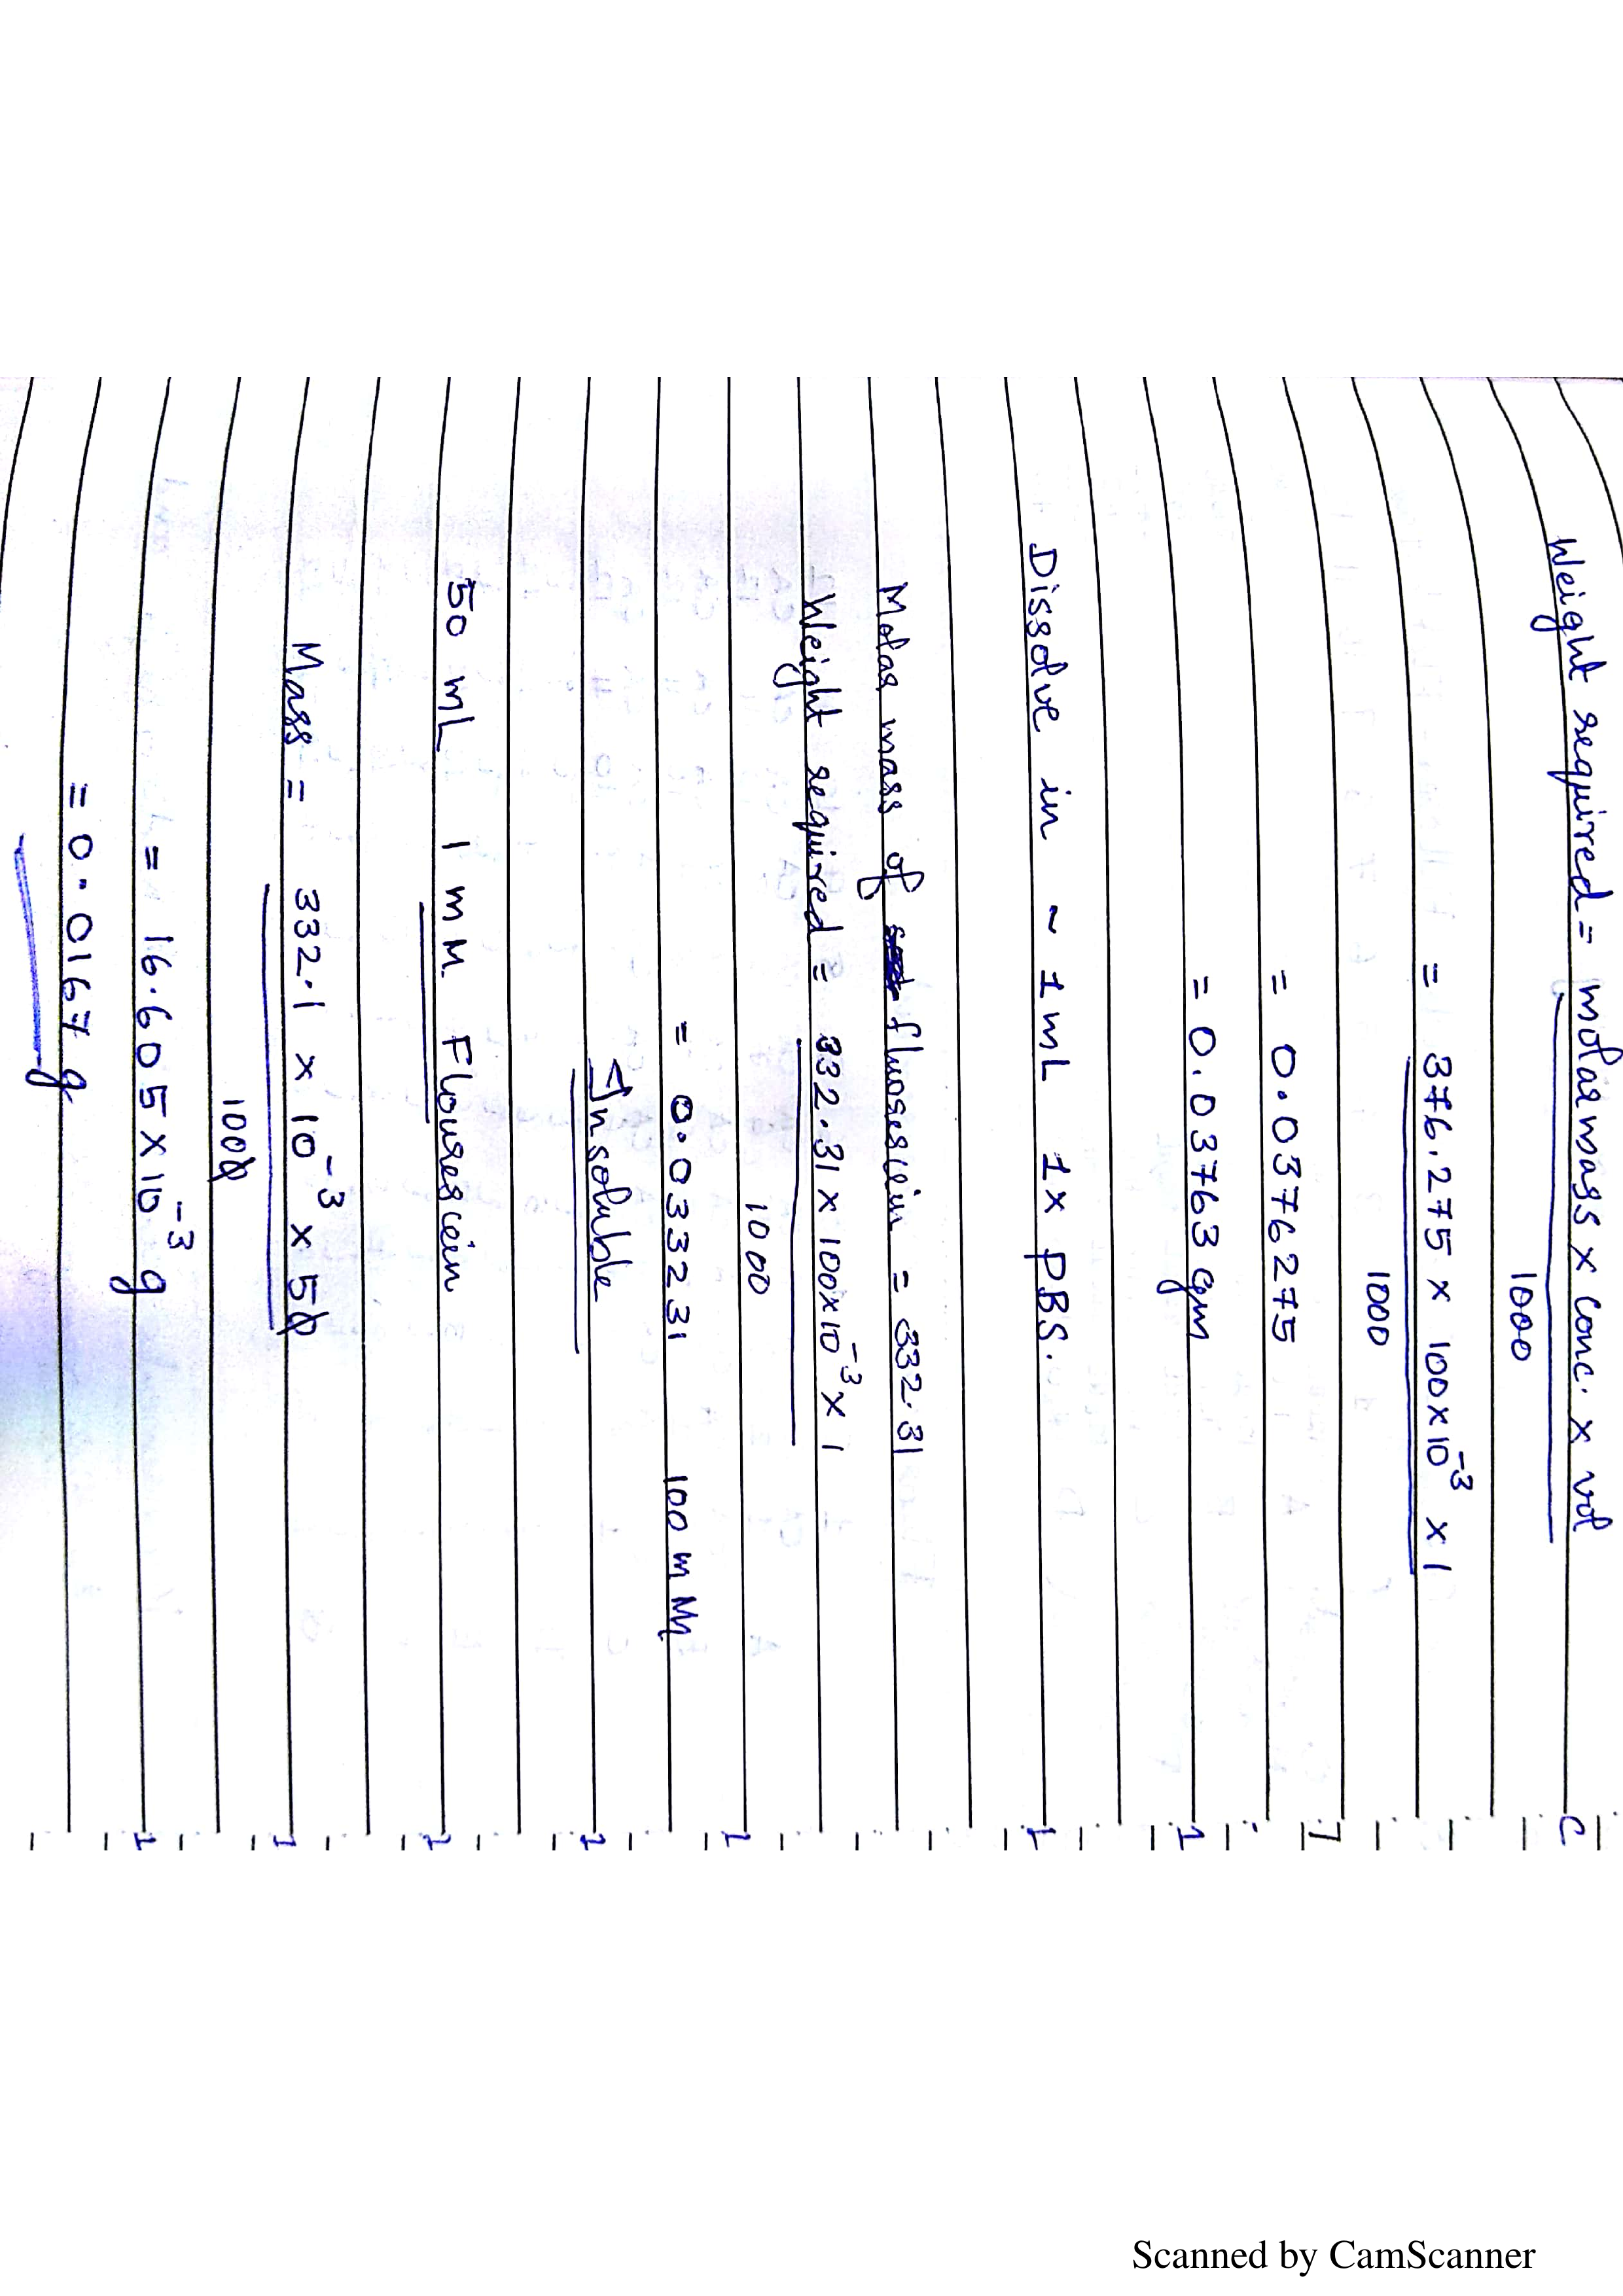 Weight required = molar mass x conc. x vol
1000
= 376.275 x 100x10⁻³ x 1
1000
= 0.0376275
= 0.03763 gm
Dissolve in ~ 1mL 1x PBS.
Molar mass of fluorescein = 332.31
Weight required = 332.31 x 100x10⁻³ x 1
1000
= 0.033231 100 mM
Insoluble
50 mL 1 mM Flourescein
Mass = 332.1 x 10⁻³ x 50
1000
= 16.605 x 10⁻³ g
= 0.0167 g
Scanned by CamScanner